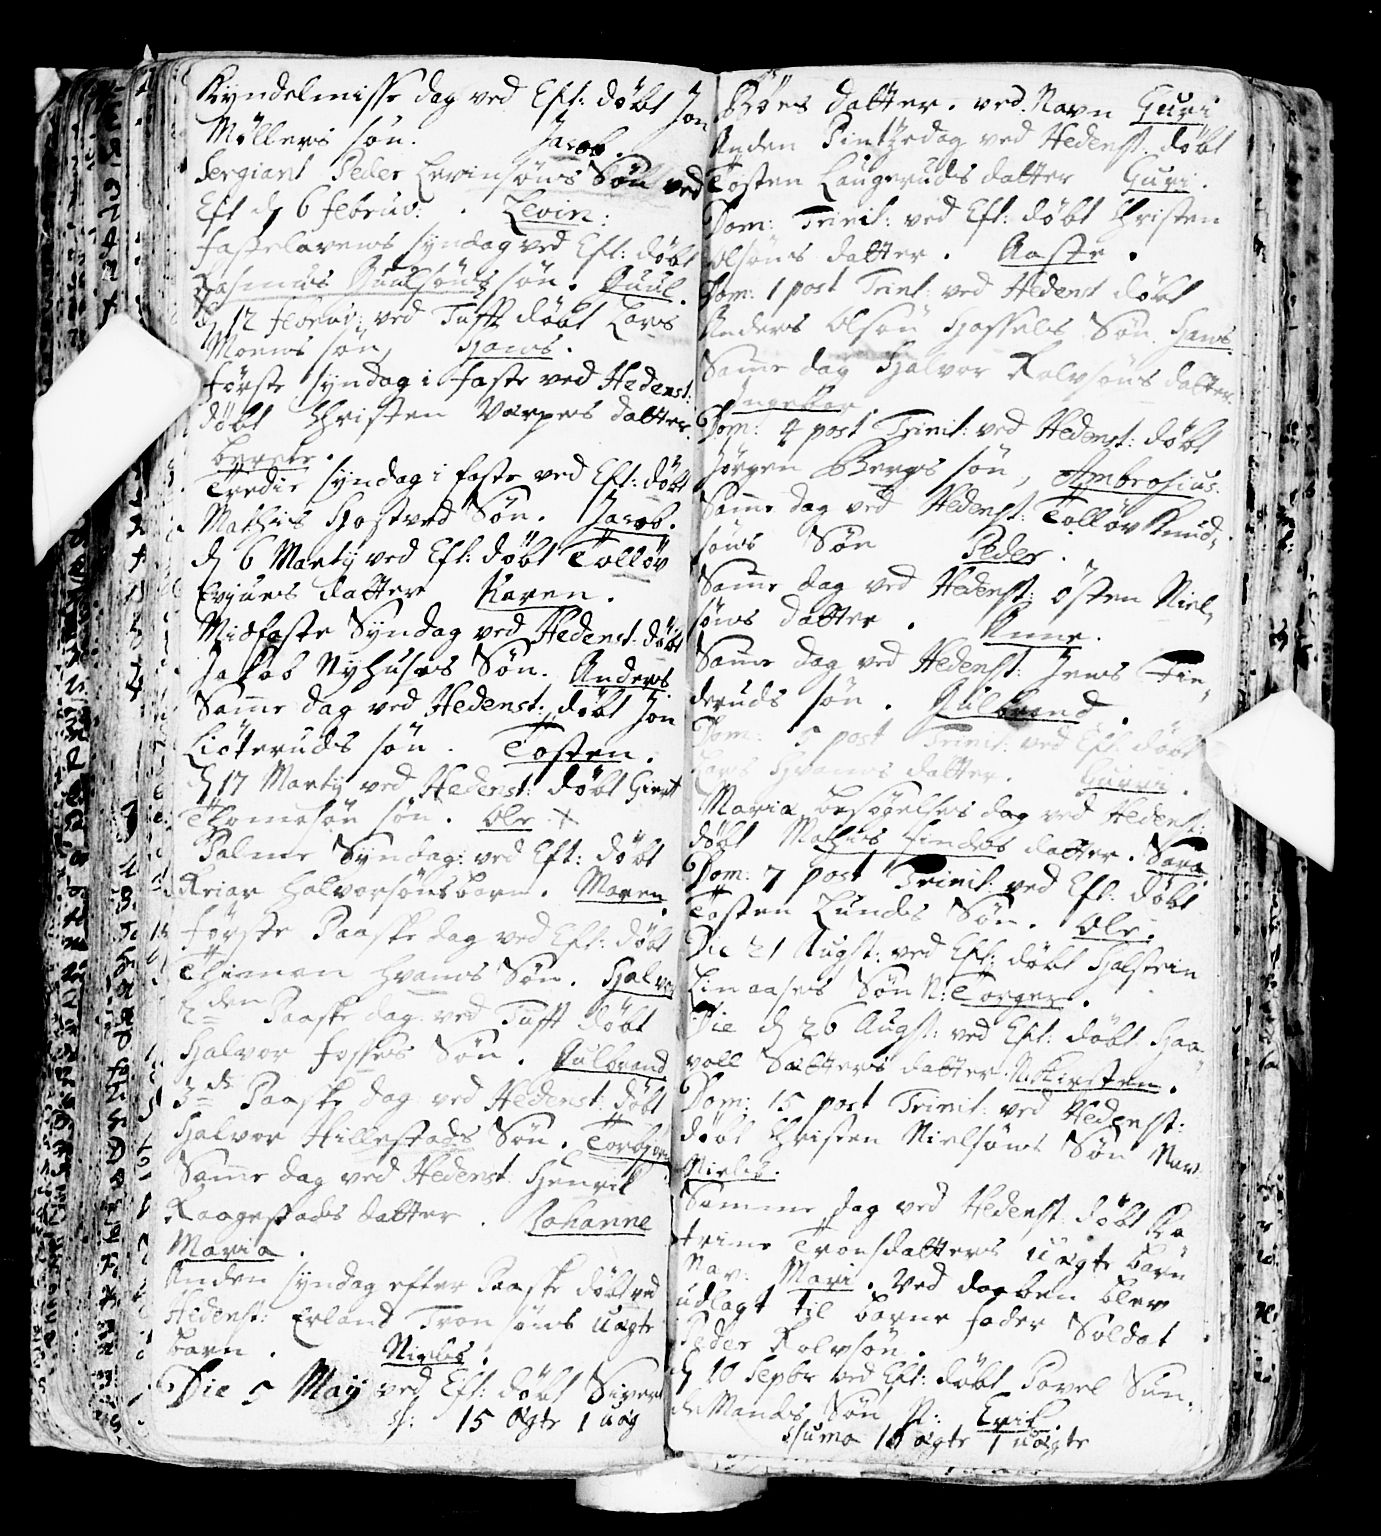 Kyndelmisse dag ved Eft: døbt Jon
Møllers søn. Jacob.
Sergiant Peder Levinsøns Søn ved
Eft d 6 februv: . Levin.
Fastelavens syndag ved Eft: døbt
Rasmus Puulsøns søn. Puul.
d 12 febrvi: ved Tufft døbt Lars
Moens søn, Hans.
Første syndag i faste ved Hedenst:
døbt Christen Værpes datter.
berete.
Tredie syndag i faste ved Eft: døbt
Mathis Hostved Søn. Jacob.
d 6 Marty ved Eft: døbt Tolløv
Evjuers datter Karen.
Midfaste Syndag ved Hedenst: døbt
Jakob Nyhuses Søn. Anders.
Samme dag ved Hedenst: døbt Jon
Liøteruds søn. Tosten.
d 17 Marty ved Hedenst: døbt Giert
Thomesøn søn. Ole
Palme Syndag: ved Eft: døbt
Halvorsøns barn. Maren
Første Paaske dag ved Eft: døbt
Thimon Hvams Søn. Halvor
2den Paaske dag ved Tufft døbt
Halvor Fosses Søn. Gulbrand
3de Paaske dag ved Hedenst: døbt
Halvor Hillestads Søn. Torbjørn
Samme dag ved Hedenst Henrik
Kaagestads datter. Johanne
Maria.
Anden syndag efter Paaske døbt ved
Hedenst: Erland Tronsøns uægte
barn. Nielss.
Die 5 Maij ved Eft: døbt Sivert
s: 15 ægte 1 uæg
Bøes datter. ved Navn Guri
Anden Pintzedag ved Hedenst: døbt
Tosten Laugeruds datter Guri.
Dom: Trinit: ved Eft: døbt Christen
Olsøns datter. Aaste.
Dom: 1 post Trint: ved Hedenst døbt
Anders Olsøn Hassels Søn. Hans
Same dag Halvor Rolvsøns datter
Ingebor
Dom: 4 post Trinit: ved Hedenst: døbt
Jørgen Bergs søn, Ambrosius.
Same dag ved Hedenst: Tolløv Knud,
søns Søn Peder.
Same dag ved Hedenst: Østen Niel,
søns datter. Anne.
Same dag ved Hedenst: Jens Tin,
deruds søn. Gulbrand.
Dom: 5 post Trinit: ved Eft: døbt
Lars Hvams datter. Gurri.
Maria besøgelses dag ved Hedenst:
døbt Mathis Lindes datter. Sara
Dom: 7 post Trinit: ved Eft: døbt
Tosten Lundes Søn. Ole.
Die 21 Augst: ved Eft: døbt Halstein
Linaases Søn N: Torger.
Die d 26 Augst: ved Eft: døbt Haa,
voll Sætters datter. N. Kirsten.
Dom: 15 post Trinit: ved Hedenst:
døbt Christen Nielsøns Søn Nav:
Niels.
Samme dag ved Hedenst. døbt Ka
trine Tronsdatters uægte barn
Nav: Mari. Ved daaben blev
udlagt til barne fader Soldat
Peder Rolvsøn.
d 10 Sepbr ved Eft: døbt Povel Sun,
de Mands Søn N: Erik.
Suma 16 ægte 1 uægte